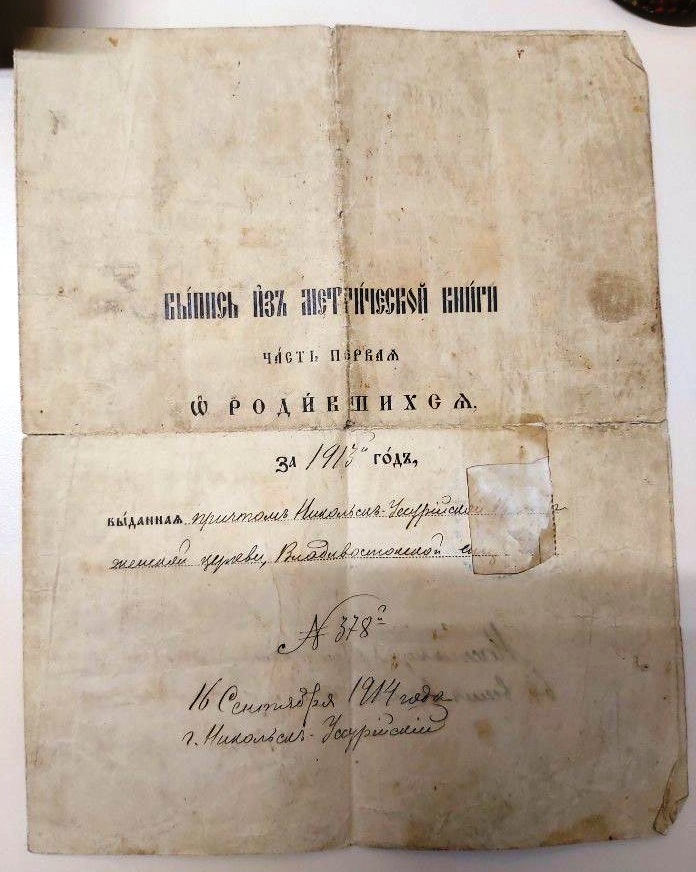 ВЫ́ПИСЬ И҆ЗЪ МЕТРИ́ЧЕСКОЙ КНИ́ГИ
ЧА́СТЬ ПЕРВАЯ
Ѽ РОДИ́ВШИХСЯ.
ЗА 1913й ГО́ДЪ,
ВЫ́ДАННАЯ причтомъ Никольскъ-Уссурійской
женской церкви, Владивостокской
№ 378й
16 Сентября 1914 года
г. Никольскъ-Уссурійскій